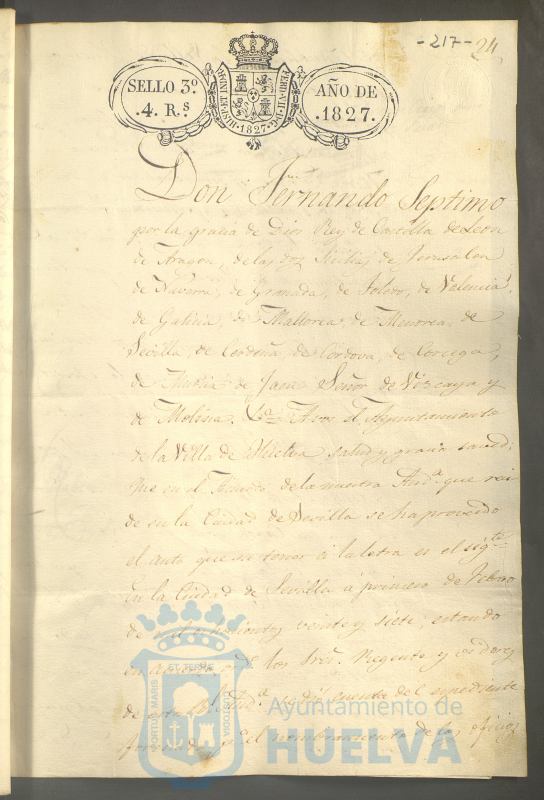 -217- 24
SELLO 3º
.4. Rˢ
HISP. ET IND. R. FERD. VII. D. G. 1827
AÑO DE
.1827.
Don Fernando Septimo
por la gracia de Dios Rey de Castilla de Leon
de Aragon, de las dos Sicilias, de Jerusalen
de Navarra, de Granada, de Toledo, de Valencia,
de Galicia, de Mallorca, de Menorca, de
Sevilla, de Cerdeña, de Cordova, de Corcega,
de Murcia de Jaen Señor de Vizcaya y
de Molina. &ª A vos el Ayuntamiento
de la Villa de Huelva salud y gracia saved:
que en el Acuerdo de la nuestra Audª. que resi
de en la Ciudad de Sevilla se ha proveido
el auto que su tenor á la letra es el sigᵗᵉ
En la Ciudad de Sevilla á primero de Febrero
de mil ochocientos veinte y siete; estando
en acuerdo los Sres. Regente y oidores
de esta Rˡ Audª. se dió cuenta del expediente
formado pª el nombramiento de los oficios
PORTUS MARIS ET TERRE CUSTODIA
Ayuntamiento de
HUELVA